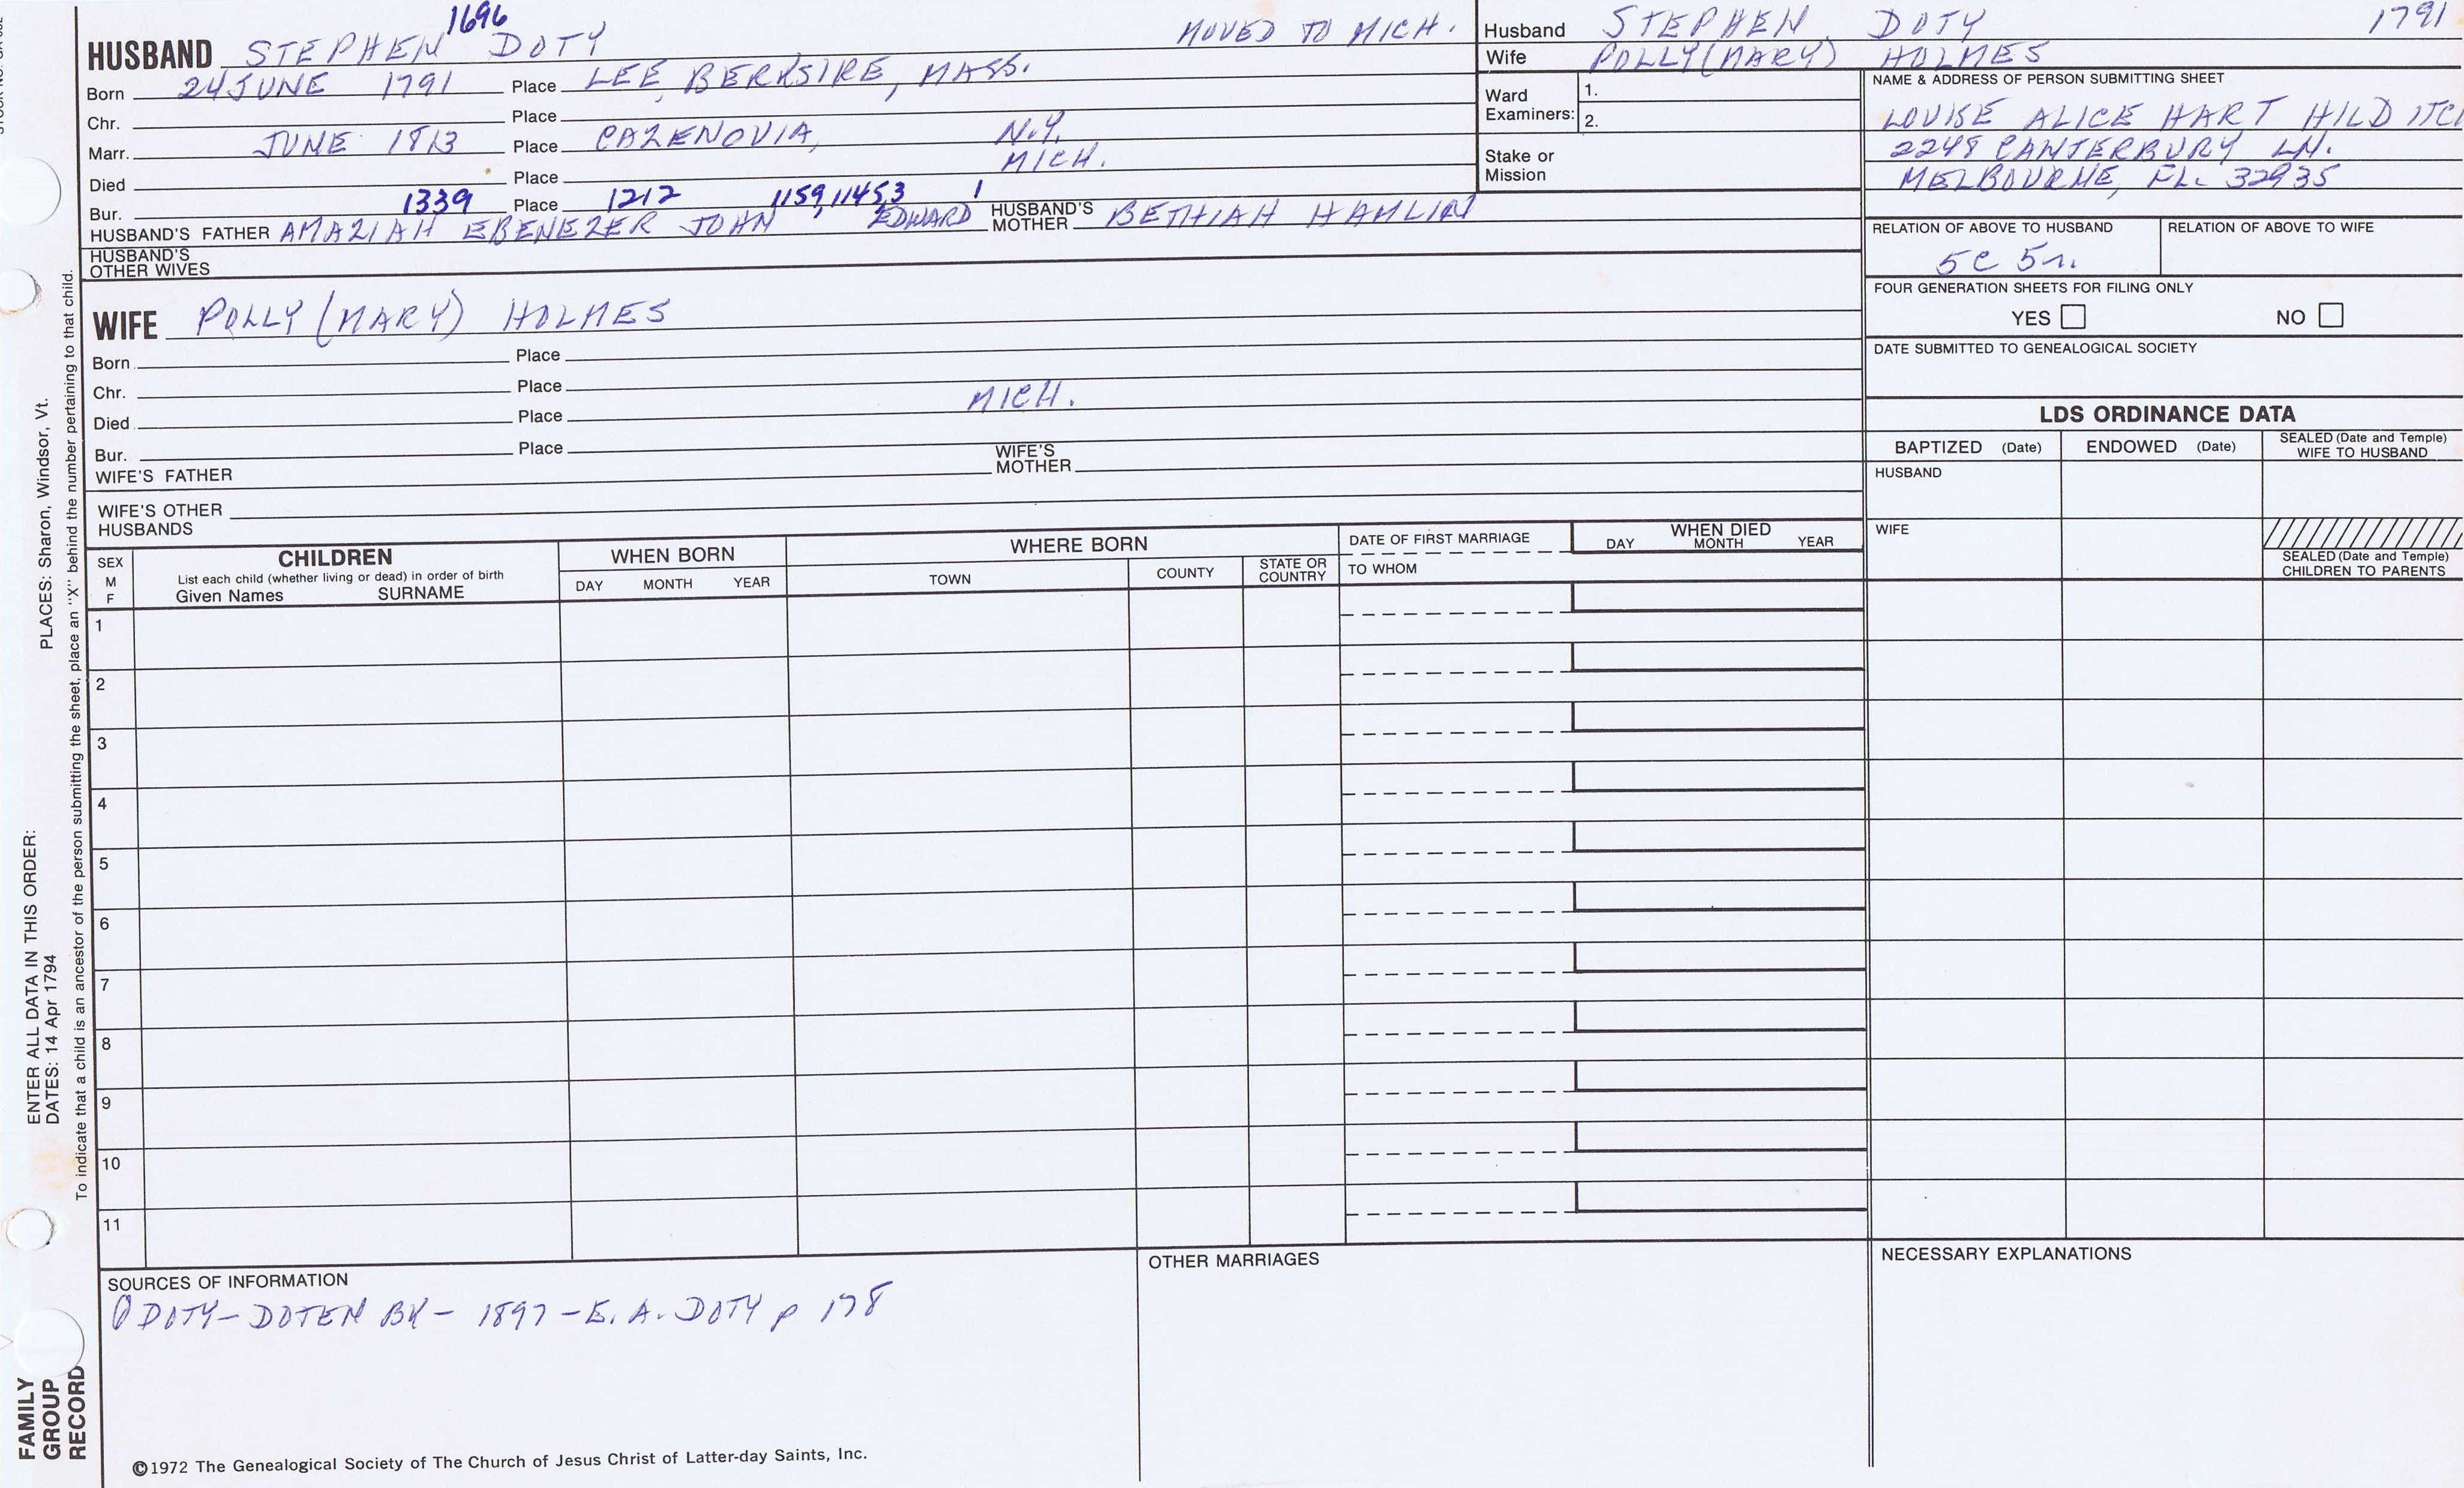 1696
HUSBAND STEPHEN DOTY MOVED TO MICH.
Born 24 JUNE 1791 Place LEE, BERKSIRE, MASS.
Chr. Place
Marr. JUNE 1813 Place CAZENOVIA, N.Y.
Died Place MICH.
Bur. 1339 Place 1212 1159, 11453 1
HUSBAND'S FATHER AMAZIAH EBENEZER JOHN EDWARD HUSBAND'S MOTHER BETHIAH HAMLIN
HUSBAND'S OTHER WIVES
WIFE POLLY (MARY) HOLMES
Born Place
Chr. Place
Died Place MICH.
Bur. Place
WIFE'S FATHER WIFE'S MOTHER
WIFE'S OTHER HUSBANDS
Husband STEPHEN DOTY 1791
Wife POLLY (MARY) HOLMES
Ward Examiners: 1.
2.
Stake or Mission
NAME & ADDRESS OF PERSON SUBMITTING SHEET
LOUISE ALICE HART HILD
2248 CANTERBURY LN.
MELBOURNE, FL. 32935
RELATION OF ABOVE TO HUSBAND RELATION OF ABOVE TO WIFE
5C 5r.
FOUR GENERATION SHEETS FOR FILING ONLY
YES NO
DATE SUBMITTED TO GENEALOGICAL SOCIETY
LDS ORDINANCE DATA
BAPTIZED (Date) ENDOWED (Date) SEALED (Date and Temple) WIFE TO HUSBAND
HUSBAND
WIFE
SEALED (Date and Temple) CHILDREN TO PARENTS
SEX M F
CHILDREN
List each child (whether living or dead) in order of birth
Given Names SURNAME
WHEN BORN
DAY MONTH YEAR
WHERE BORN
TOWN COUNTY STATE OR COUNTRY
DATE OF FIRST MARRIAGE
TO WHOM
WHEN DIED
DAY MONTH YEAR
1
2
3
4
5
6
7
8
9
10
11
SOURCES OF INFORMATION
DOTY-DOTEN BK- 1897-E. A. DOTY p 178
OTHER MARRIAGES
NECESSARY EXPLANATIONS
©1972 The Genealogical Society of The Church of Jesus Christ of Latter-day Saints, Inc.
FAMILY GROUP RECORD
ENTER ALL DATA IN THIS ORDER:
DATES: 14 Apr 1794
PLACES: Sharon, Windsor, Vt.
To indicate that a child is an ancestor of the person submitting the sheet, place an "X" behind the number pertaining to that child.